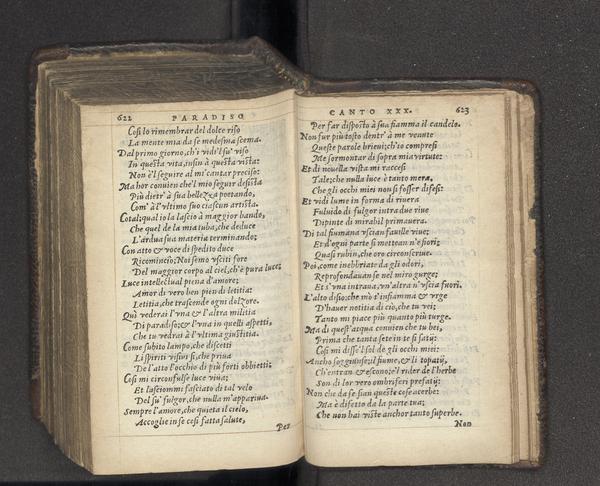 622 PARADISO
Cosi lo rimembrar del dolce riso
La mente mia da se medesma scema.
Dal primo giorno, ch'i vidi'l su' viso
In questa vita, insin à questa vista:
Non è'l seguire al mi' cantar preciso:
Ma hor convien che'l mio seguir desista
Più dietr' à sua bellezza poetando,
Com' à l'ultimo suo ciascun artista.
Cotal; qual io la lascio à maggior bando,
Che quel de la mia tuba, che deduce
L'ardua sua materia terminando;
Con atto & voce di spedito duce
Ricominciò; Noi semo usciti fore
Del maggior corpo al ciel, ch'è pura luce;
Luce intellectual piena d'amore;
Amor di vero ben pien di letitia;
Letitia, che trascende ogni dolzore.
Quì vederai l'una & l'altra militia
Di paradiso; & l'una in quelli aspetti,
Che tu vedrai à l'ultima giustitia.
Come subito lampo, che discetti
Li spiriti visivi si, che priva
De l'atto l'occhio di più forti obbietti;
Cosi mi circonfulse luce viva;
Et lasciommi fasciato di tal velo
Del su' fulgor, che nulla m'appariva.
Sempre l'amore, che quieta il cielo,
Accoglie in se cosi fatta salute,
Per
CANTO XXX. 623
Per far disposto à sua fiamma il candelo.
Non fur più tosto dentr' à me venute
Queste parole brievi; ch'io compresi
Me sormontar di sopra mia virtute:
Et di novella vista mi raccesi
Tale; che nulla luce è tanto mera,
Che gli occhi miei non si fosser difesi:
Et vidi lume in forma di rivera
Fulvido di fulgor intra due rive
Dipinte di mirabil primavera.
Di tal fiumana uscian faville vive;
Et d'ogni parte si mettean ne' fiori;
Quasi rubin, che oro circonscrive.
Poi, come inebbriate da gli odori,
Reprofondavan se nel miro gurge;
Et s'una intrava, un'altra n'uscia fuori.
L'alto disio; che mò t'infiamma & urge
D'haver notitia di ciò, che tu vei;
Tanto mi piace più quanto più turge.
Ma di quest'acqua convien che tu bei,
Prima che tanta sete in te si satij:
Cosi mi disse'l sol de gli occhi miei:
Ancho soggiunse; il fiume, & li topatij,
Ch'entran & escono; e'l rider de l'herbe
Son di lor vero ombriferi prefatij:
Non che da se sian queste cose acerbe:
Ma è difetto da la parte tua;
Che non hai viste anchor tanto superbe.
Non